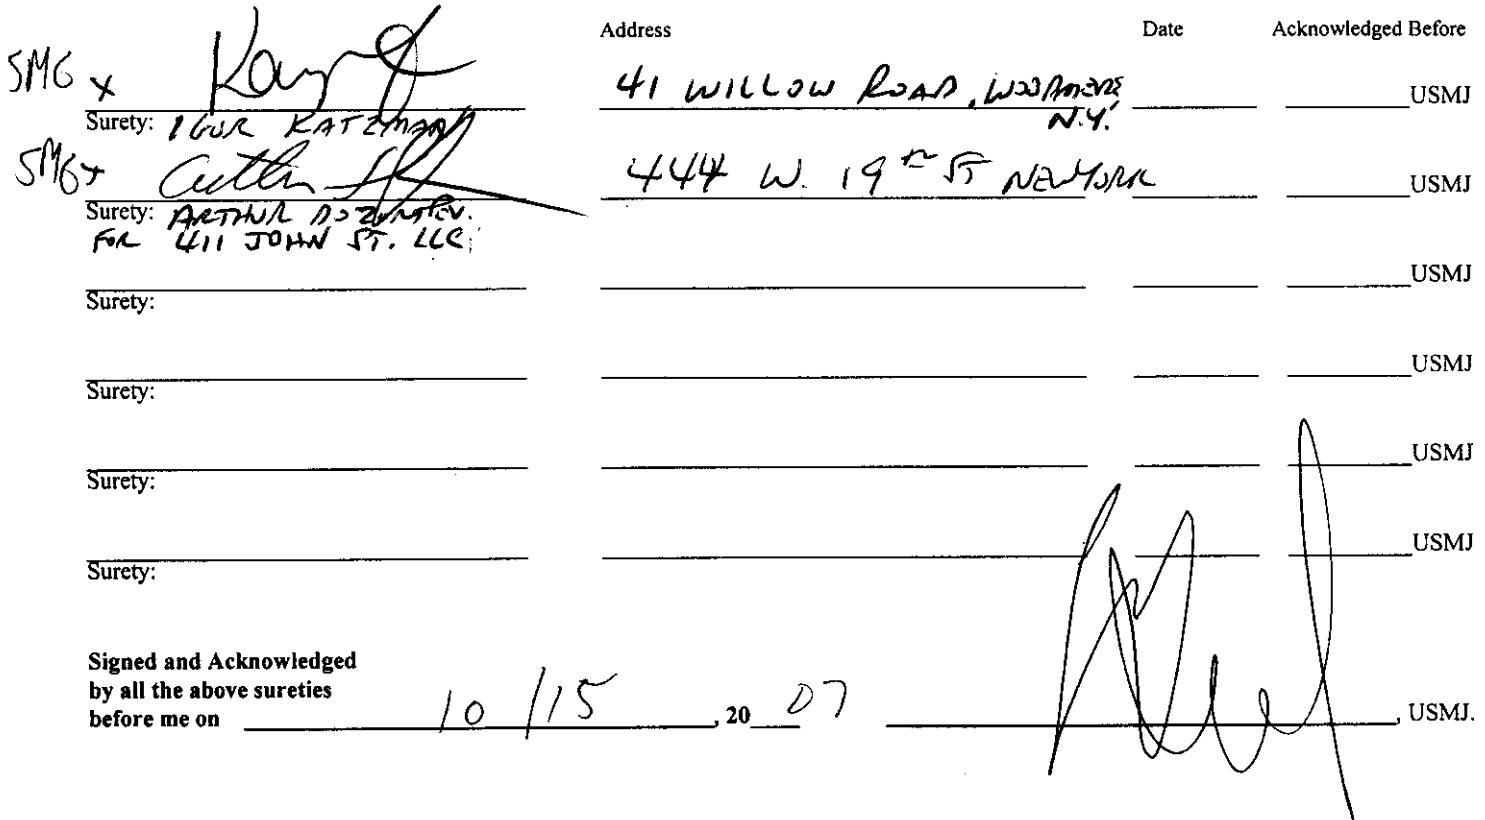 Address Date Acknowledged Before
SMG x 41 WILLOW ROAD, WOODMERE N.Y. USMJ
Surety: IGOR KATZMAN
SMG x 444 W. 19th ST NEW YORK USMJ
Surety: ARTHUR
FOR 411 JOHN ST. LLC
USMJ
Surety:
USMJ
Surety:
USMJ
Surety:
USMJ
Surety:
Signed and Acknowledged
by all the above sureties
before me on 10/15, 20 07 , USMJ.